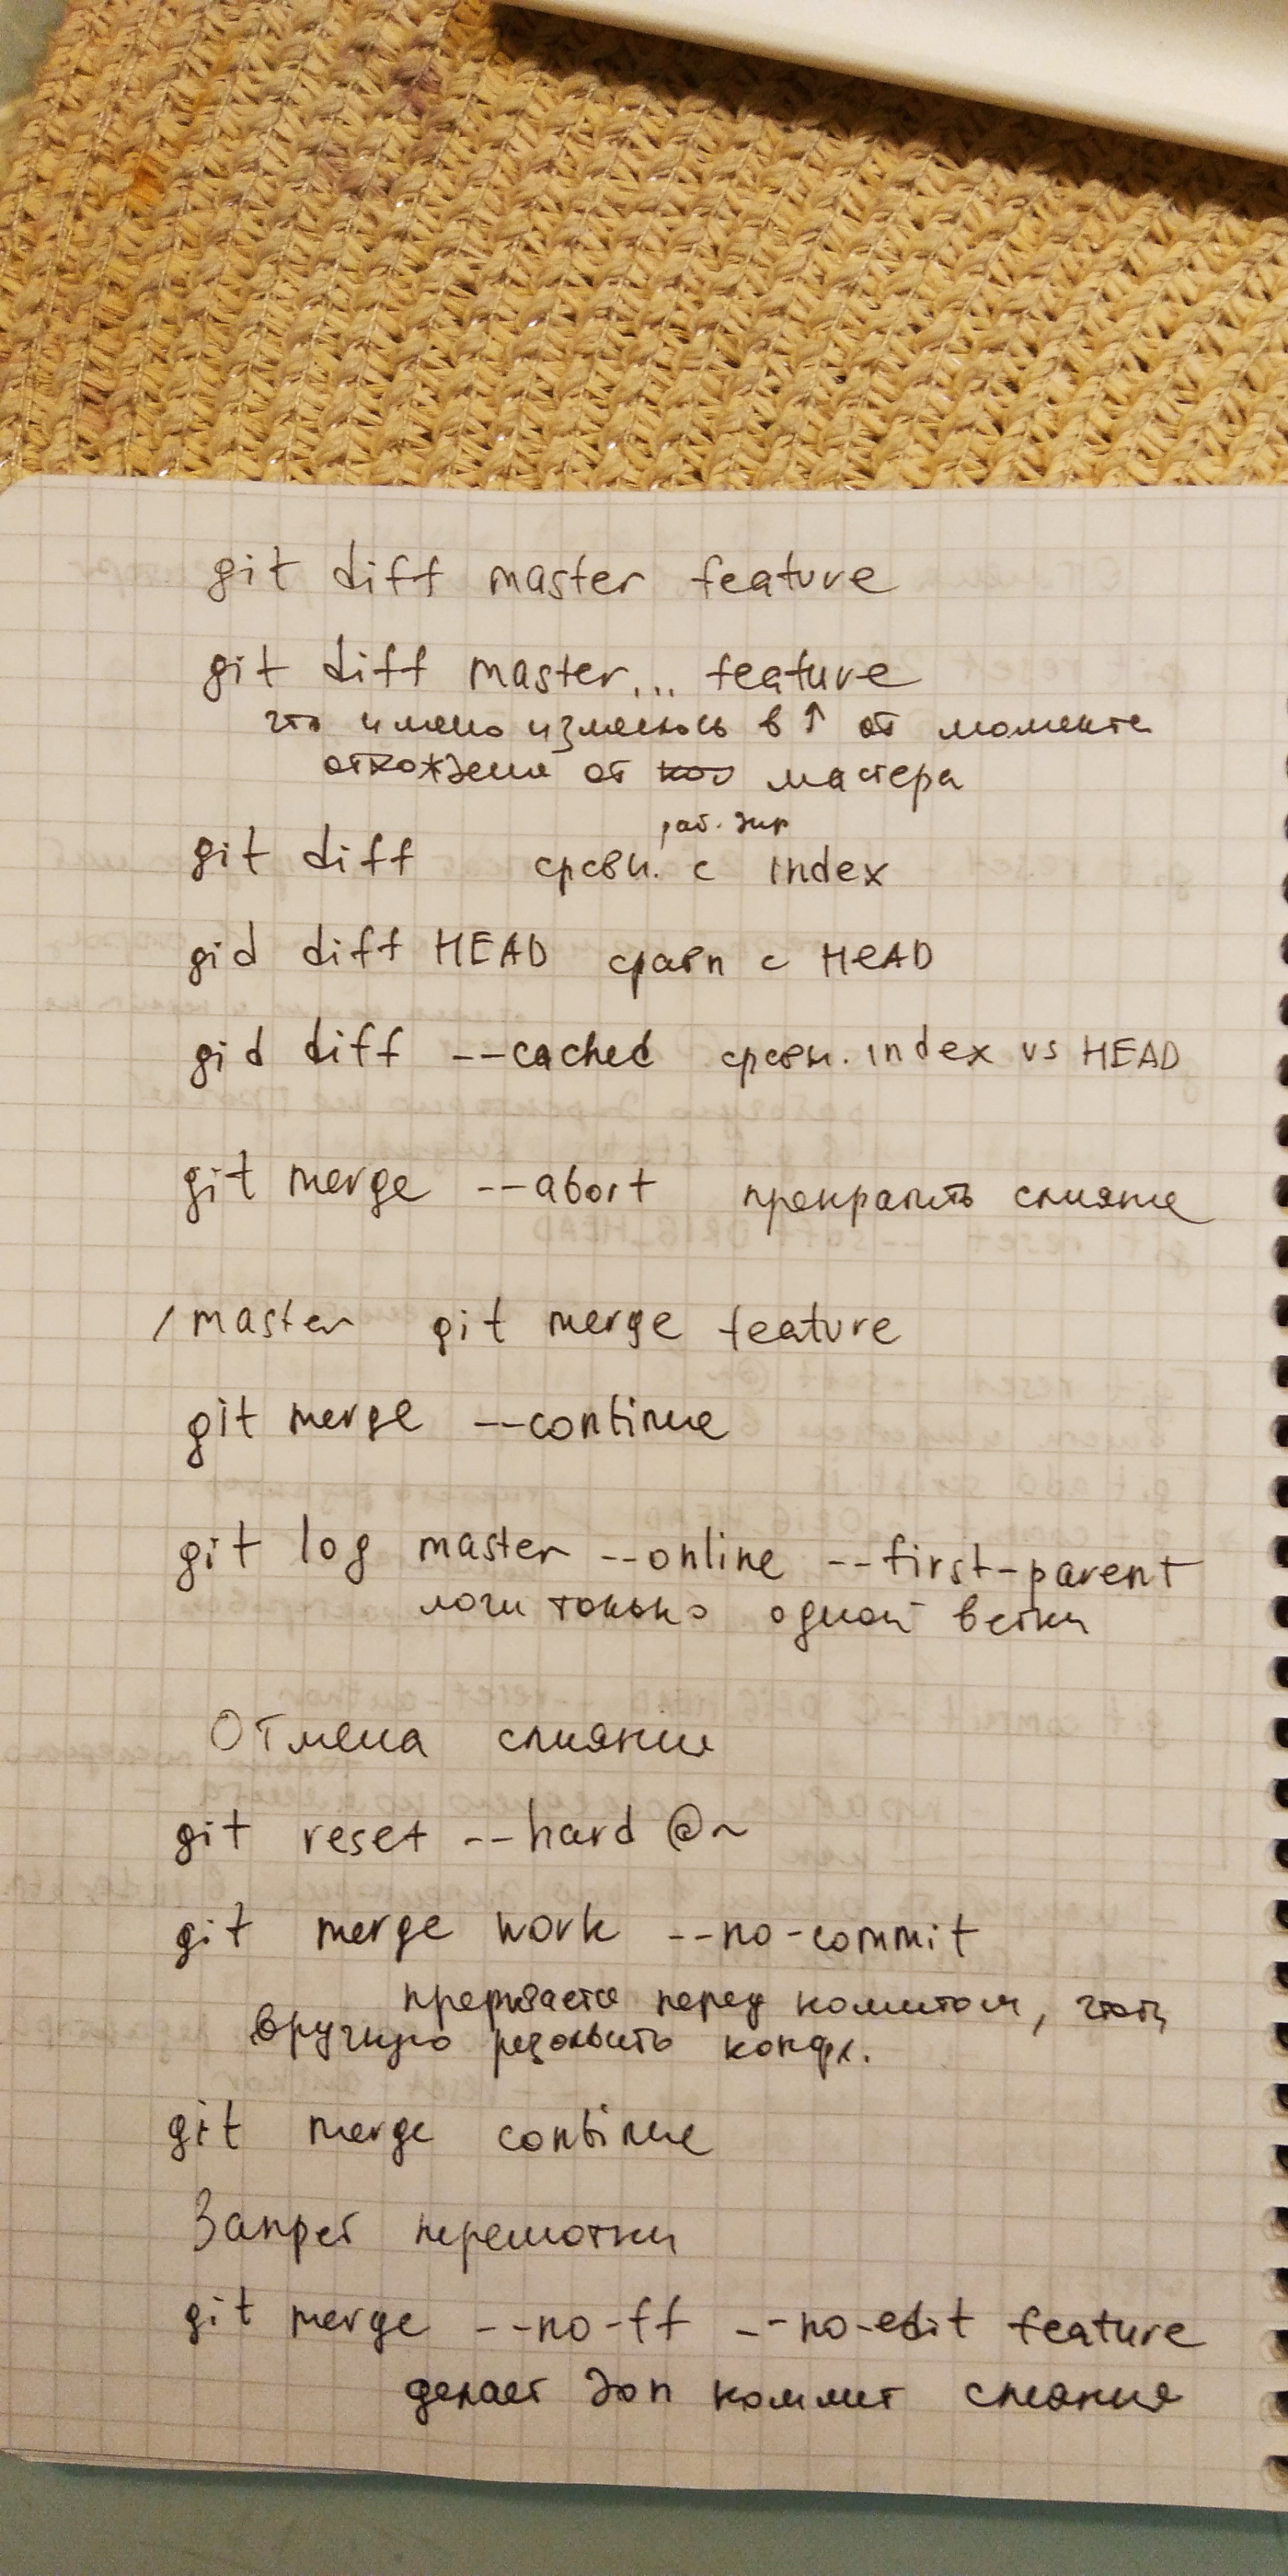 git diff master feature
git diff master... feature
что имено изменлось в ↑ от момента
отхождения от мастера
раб. дир
git diff сравн. с index
gid diff HEAD сравн с HEAD
gid diff --cached сравн. index vs HEAD
git merge --abort прекратить слияние
/master git merge feature
git merge --continue
git log master --online --first-parent
логи только одной ветки
Отмена слияния
git reset --hard @~
git merge work --no-commit
прерывается перед комитом, чтоб
вручную резольвить конфл.
git merge continue
Запрет перемотки
git merge --no-ff --no-edit feature
делает доп коммит слияния